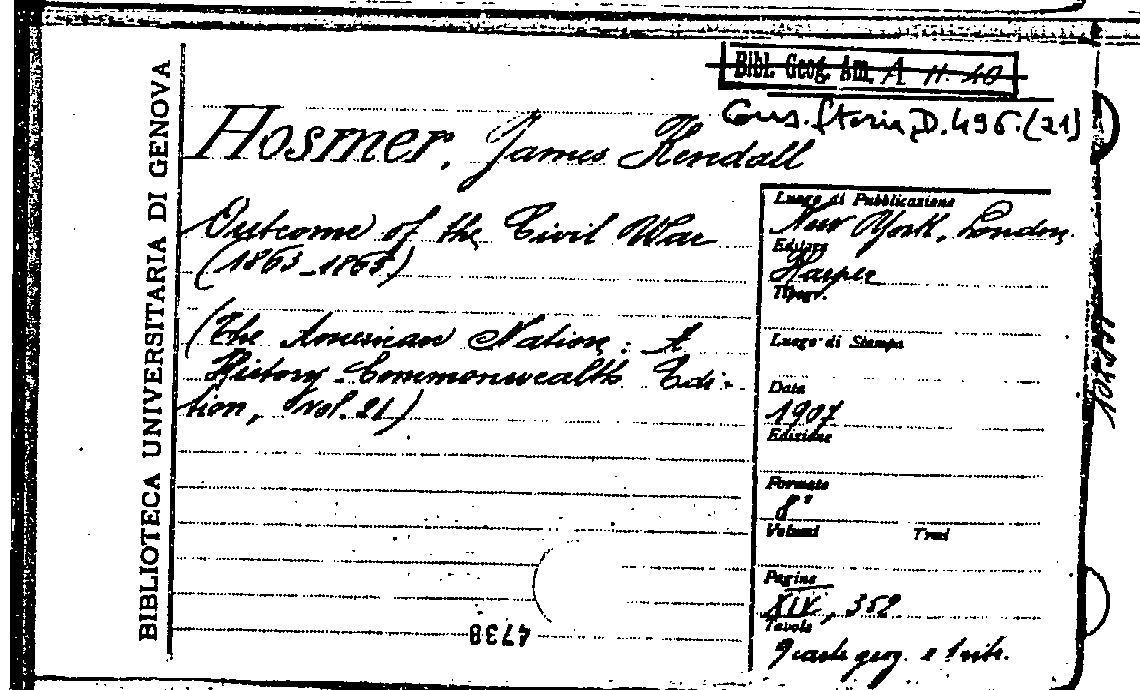 Bibl. Geog. Am. A 11. 40
Cons. Storia D. 496. (21)
Hosmer, James Kendall
Outcome of the Civil War
(1863-1865)
(The American Nation: A
History - Commonwealth Edi-
tion, vol. 21)
BIBLIOTECA UNIVERSITARIA DI GENOVA
Luogo di Pubblicazione
New York, London
Editore
Harper
Tipogr.
Luogo di Stampa
Data
1907
Edizione
Formato
8°
Volumi Tomi
Pagine
XIV, 352
Tavole
9 carte geog. e 1 ritr.
4738